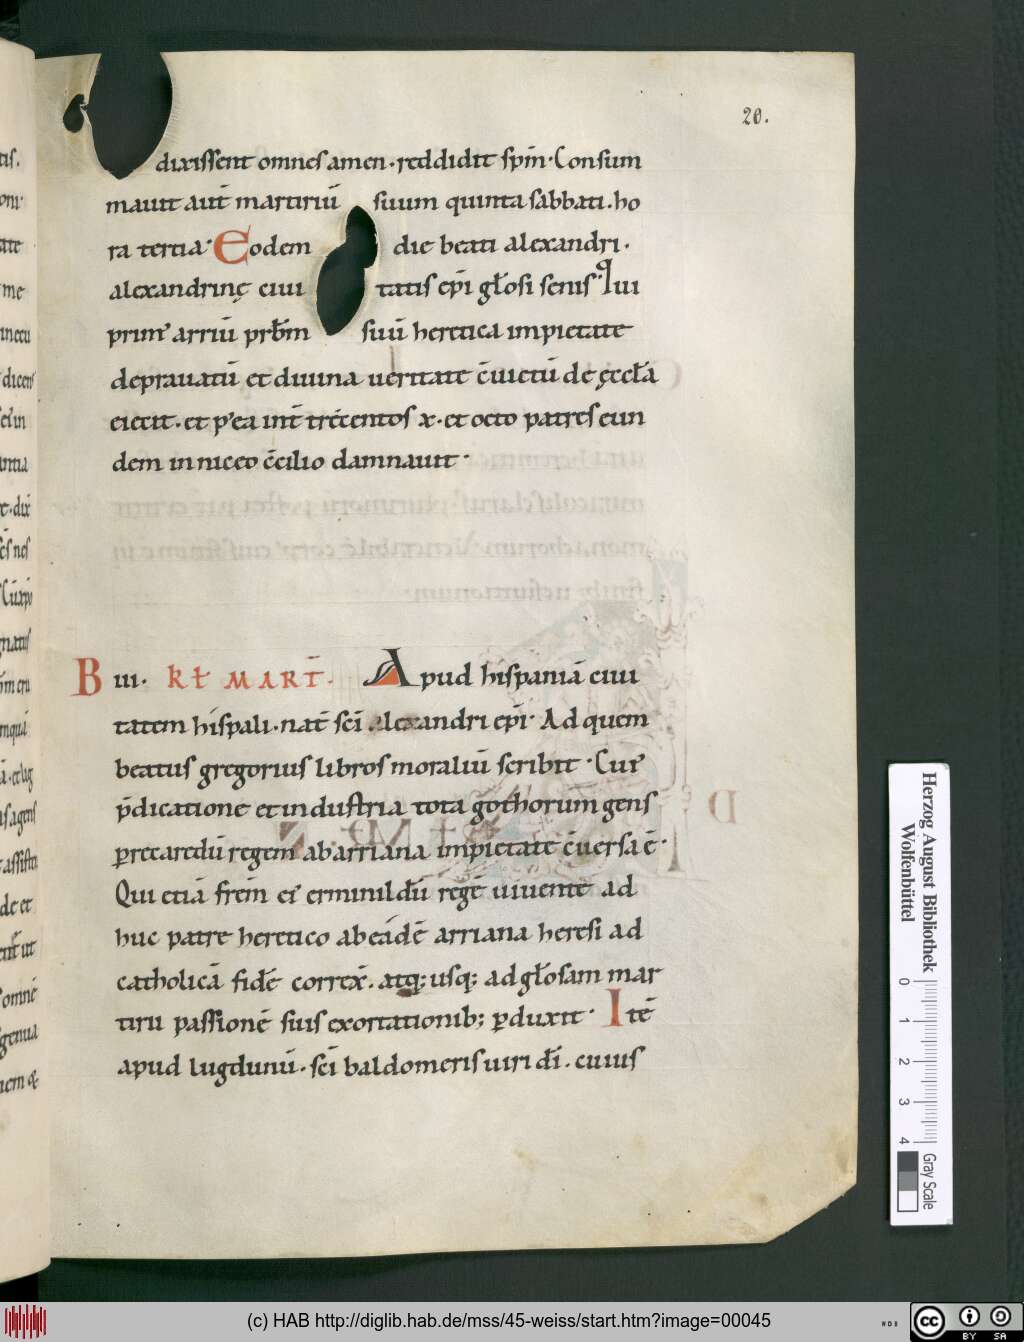 20.
dixissent omnes amen. reddidit spm̄. Consum
mauit aut̄ martiriū suum quinta sabbati. ho
ra tertia. Eodem die beati alexandri.
alexandrinę ciui tatis ep̄i gl̄osi senis. Qui
prim᾿ arriū prb̄m suū heretica impietate
deprauatū et diuina ueritate c̄uictū de ęccl̄a
eiecit. et p᾿ea int̄ trecentos x. et octo patres eun
dem in niceo c̄cilio damnauit.
B iii. kł MART̄. Apud hispaniā ciui
tatem hispali. nat̄ sc̄i alexandri ep̄i. Ad quem
beatus gregorius libros moraliū scribit. Cui᾿
p̄dicatione et industria tota gothorum gens
ꝑ recaredū regem ab arriana impietate c̄uersa ē.
Qui etiā frem̄ ei᾿ erminildū regē uiuente ad
huc patre heretico ab eādē arriana heresi ad
catholicā fidē correx̄. atq; usq; ad gl̄osam mar
tirii passionē suis exortationib; ꝑduxit. Itē
apud lugdunū. sc̄i baldomeris uiri dī. cuius
Herzog August Bibliothek
Wolfenbüttel
0 1 2 3 4
Gray Scale
(c) HAB http://diglib.hab.de/mss/45-weiss/start.htm?image=00045
cc BY SA